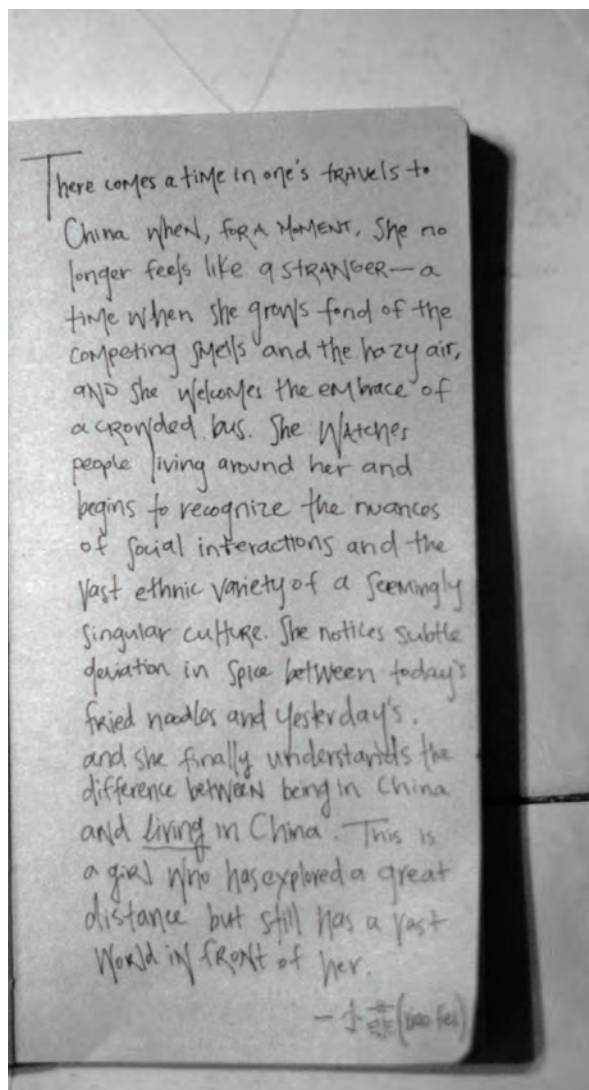 There comes a time in one's travels to
China when, for a moment, she no
longer feels like a stranger — a
time when she grows fond of the
competing smells and the hazy air,
and she welcomes the embrace of
a crowded bus. She watches
people living around her and
begins to recognize the nuances
of social interactions and the
vast ethnic variety of a seemingly
singular culture. She notices subtle
deviation in spice between today's
fried noodles and yesterday's.
and she finally understands the
difference between being in China
and living in China. This is
a girl who has explored a great
distance but still has a vast
world in front of her.